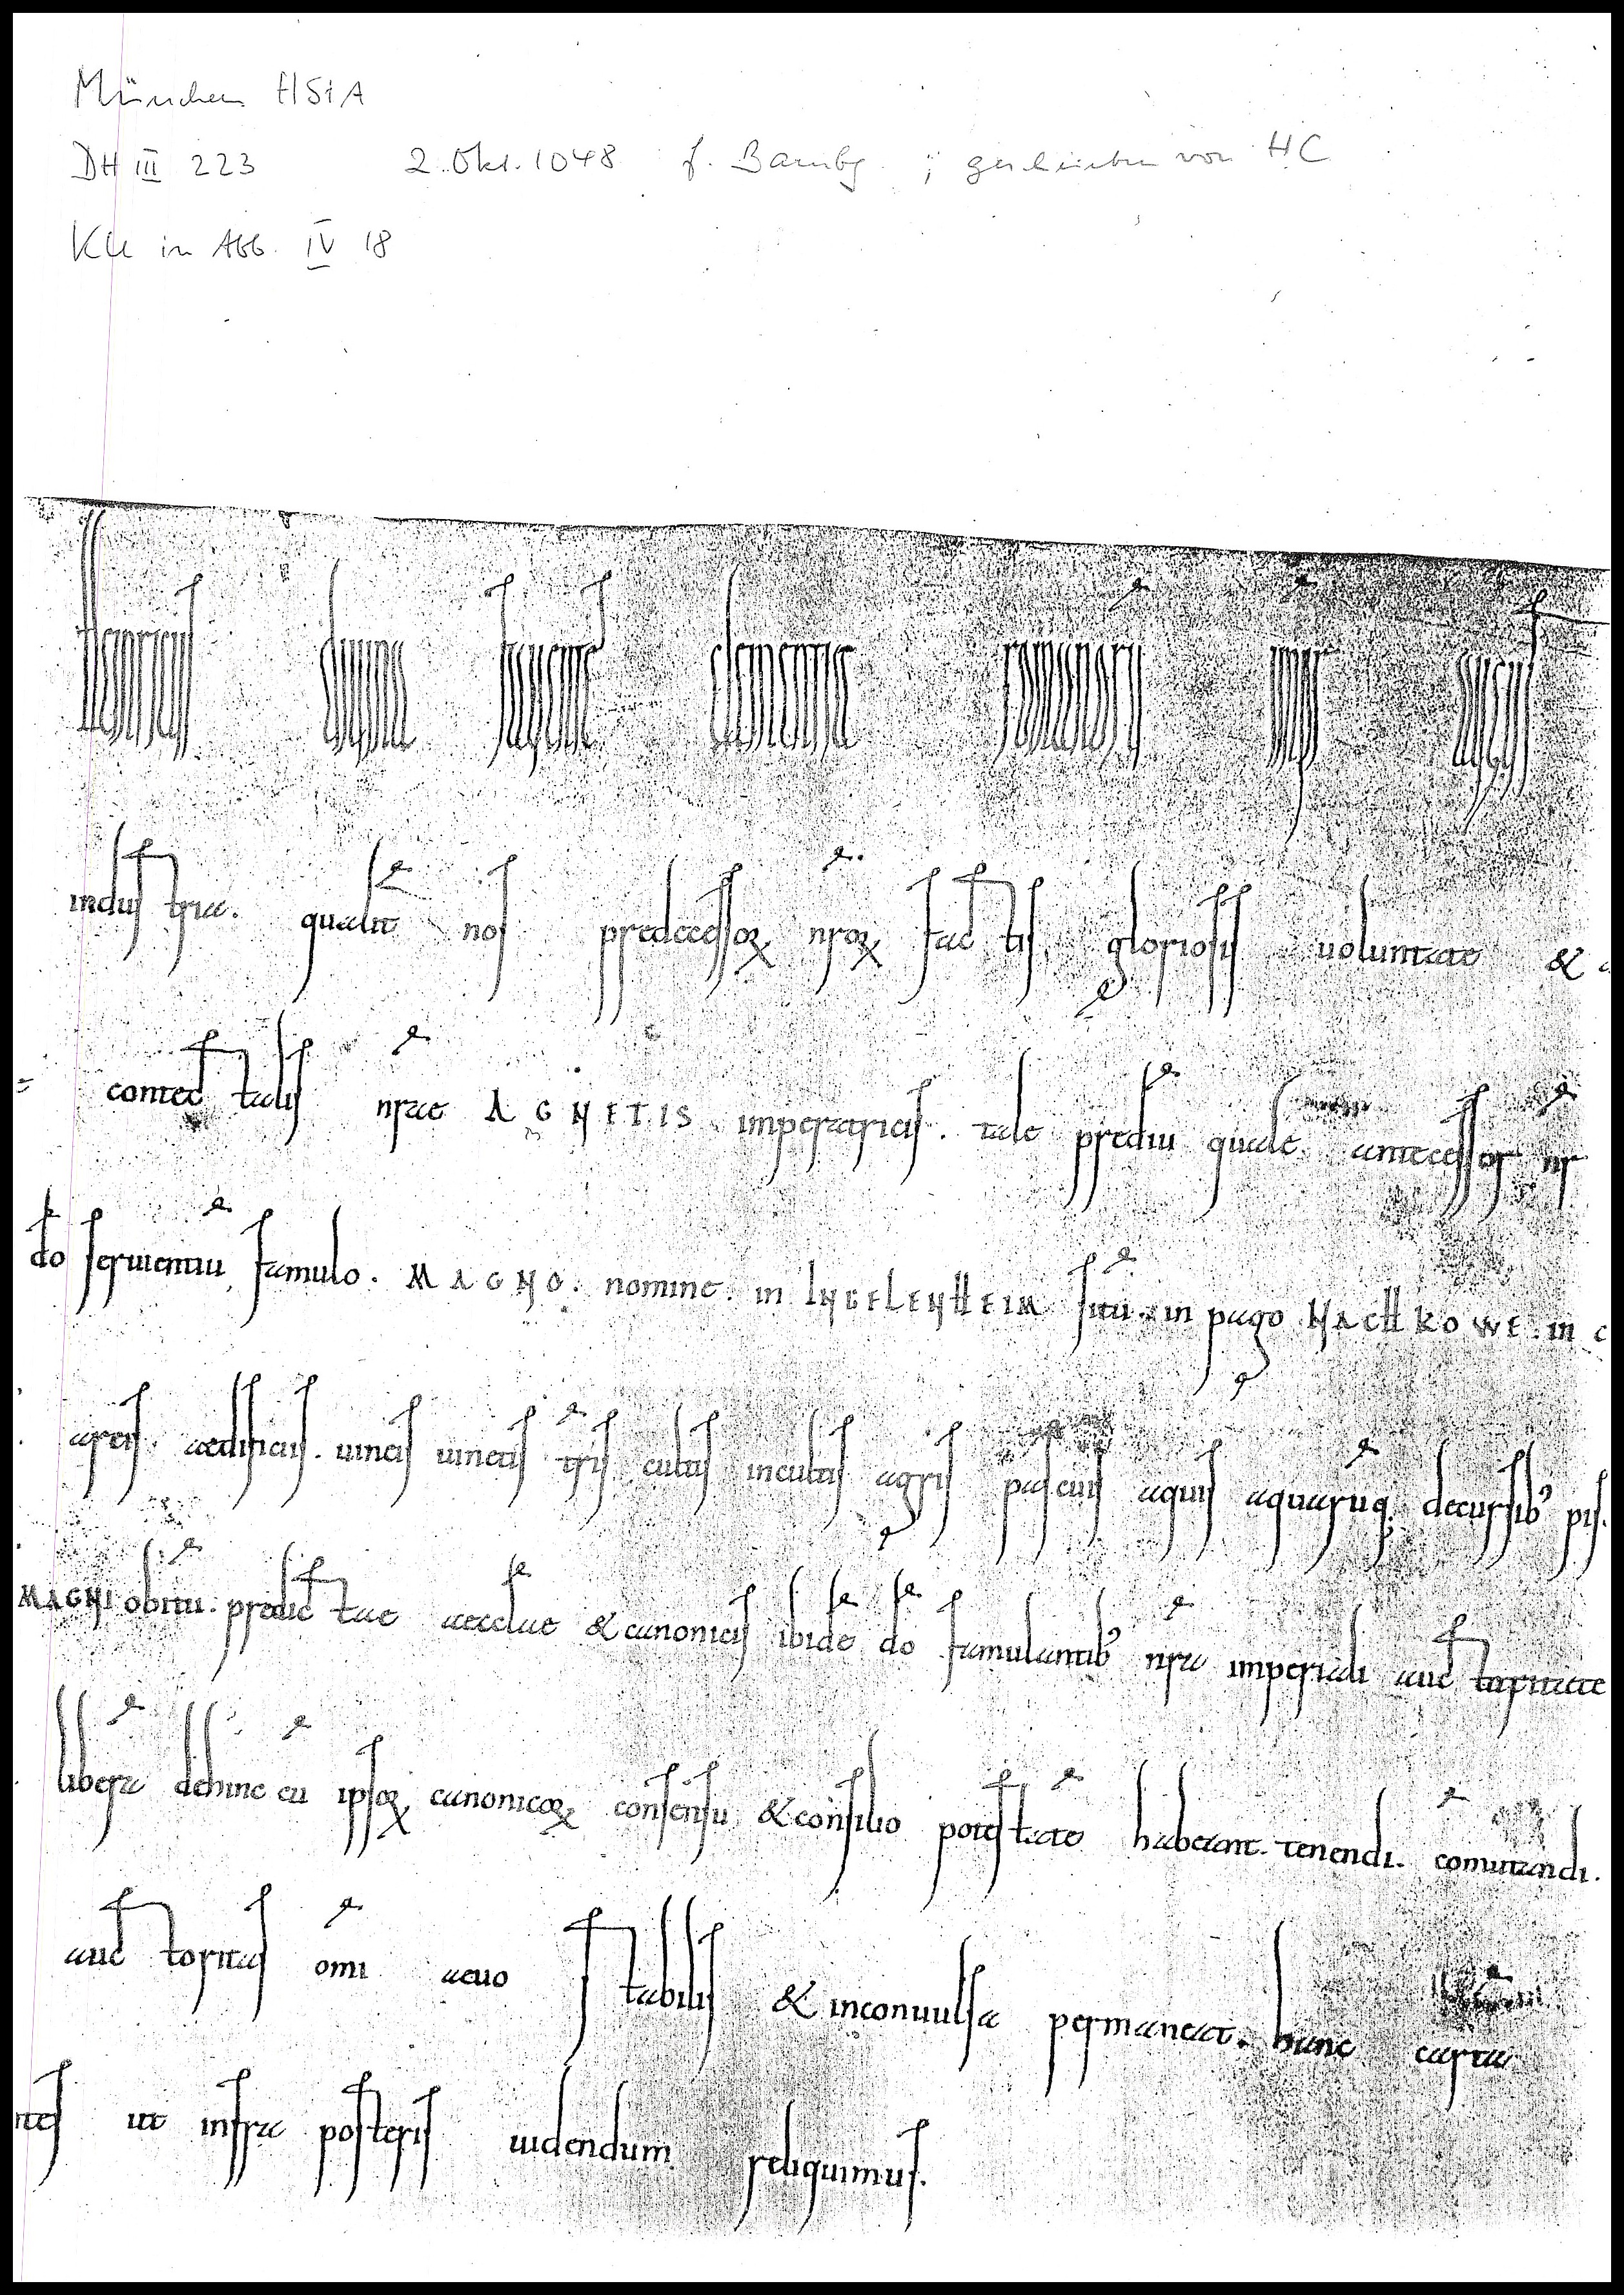 München HStA
DH III 223 2. Okt. 1048 f. Bambg. ; geschrieben von HC
KU in Abb. IV 18
Heinricus diuina fauente clementia romanorū impr̄ augūs
industria. qualit̄ nos predecessoꝝ nr̄oꝝ factis gloriosis uoluntate &
contectalis nr̄ae AGNETIS imperatricis. tale prediū quale antecessor nr̄
dō seruientiū famulo. MAGNO. nomine. in INGELENHEIM sitū. in pago NACHKOWE. in c
areis. aedificiis. uineis uinetis tr̄is cultis incultis agris pascuis aquis aquarūq; decursib; pis
MAGNI obitū. predictae aecclae & canonicis ibidē dō famulantib; nr̄a imperiali auctoritate
liberā dehinc cū ipsoꝝ canonicoꝝ consensu & consilio potestatē habeant. tenendi. comutandi.
auctoritas omi aeuo stabilis & inconuulsa permaneat. hanc cartā
ntes ut infra posteris uidendum reliquimus.